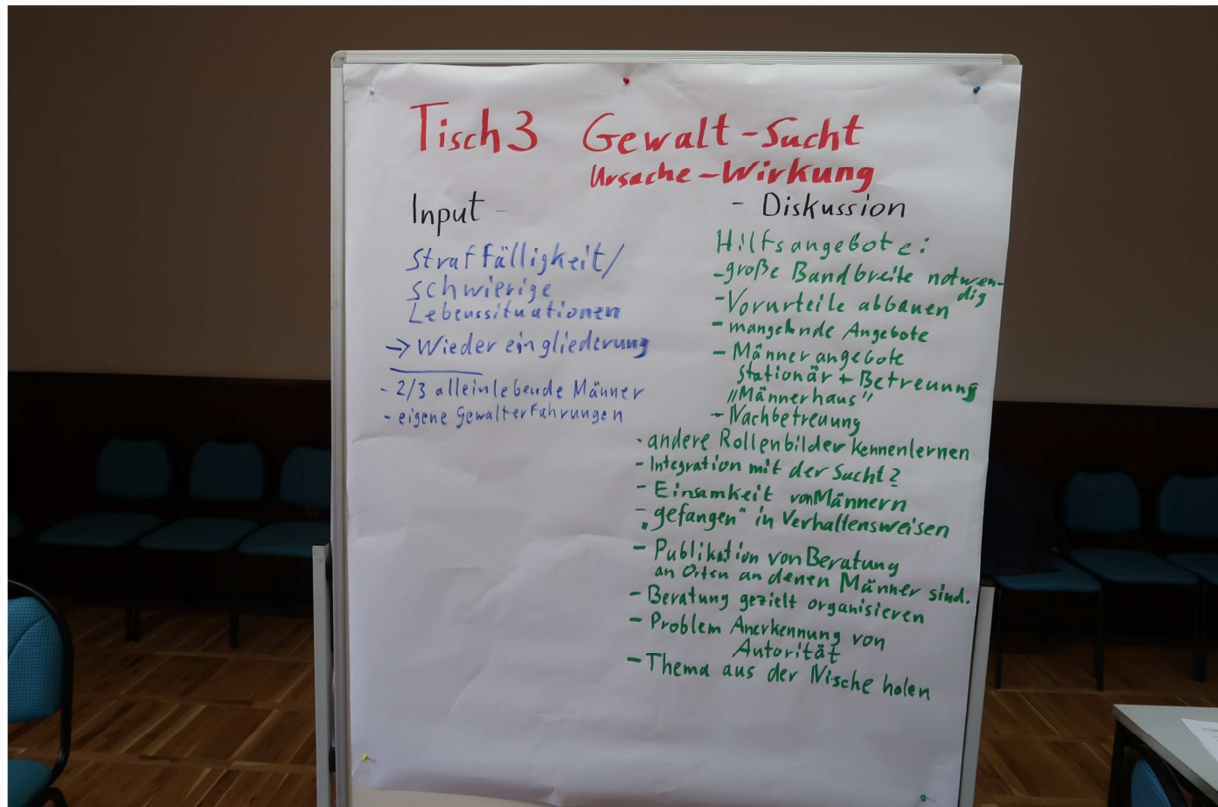 Tisch 3 Gewalt - Sucht
Ursache - Wirkung
Input -
Straffälligkeit/
schwierige
Lebenssituationen
→ Wiedereingliederung
- 2/3 alleinlebende Männer
- eigene Gewalterfahrungen
- Diskussion
Hilfsangebote:
- große Bandbreite notwen-
dig
- Vorurteile abbauen
- mangelnde Angebote
- Männerangebote
stationär + Betreuung
"Männerhaus"
- Nachbetreuung
- andere Rollenbilder kennenlernen
- Integration mit der Sucht?
- Einsamkeit von Männern
- „gefangen" in Verhaltensweisen
- Publikation von Beratung
an Orten an denen Männer sind.
- Beratung gezielt organisieren
- Problem Anerkennung von
Autorität
- Thema aus der Nische holen